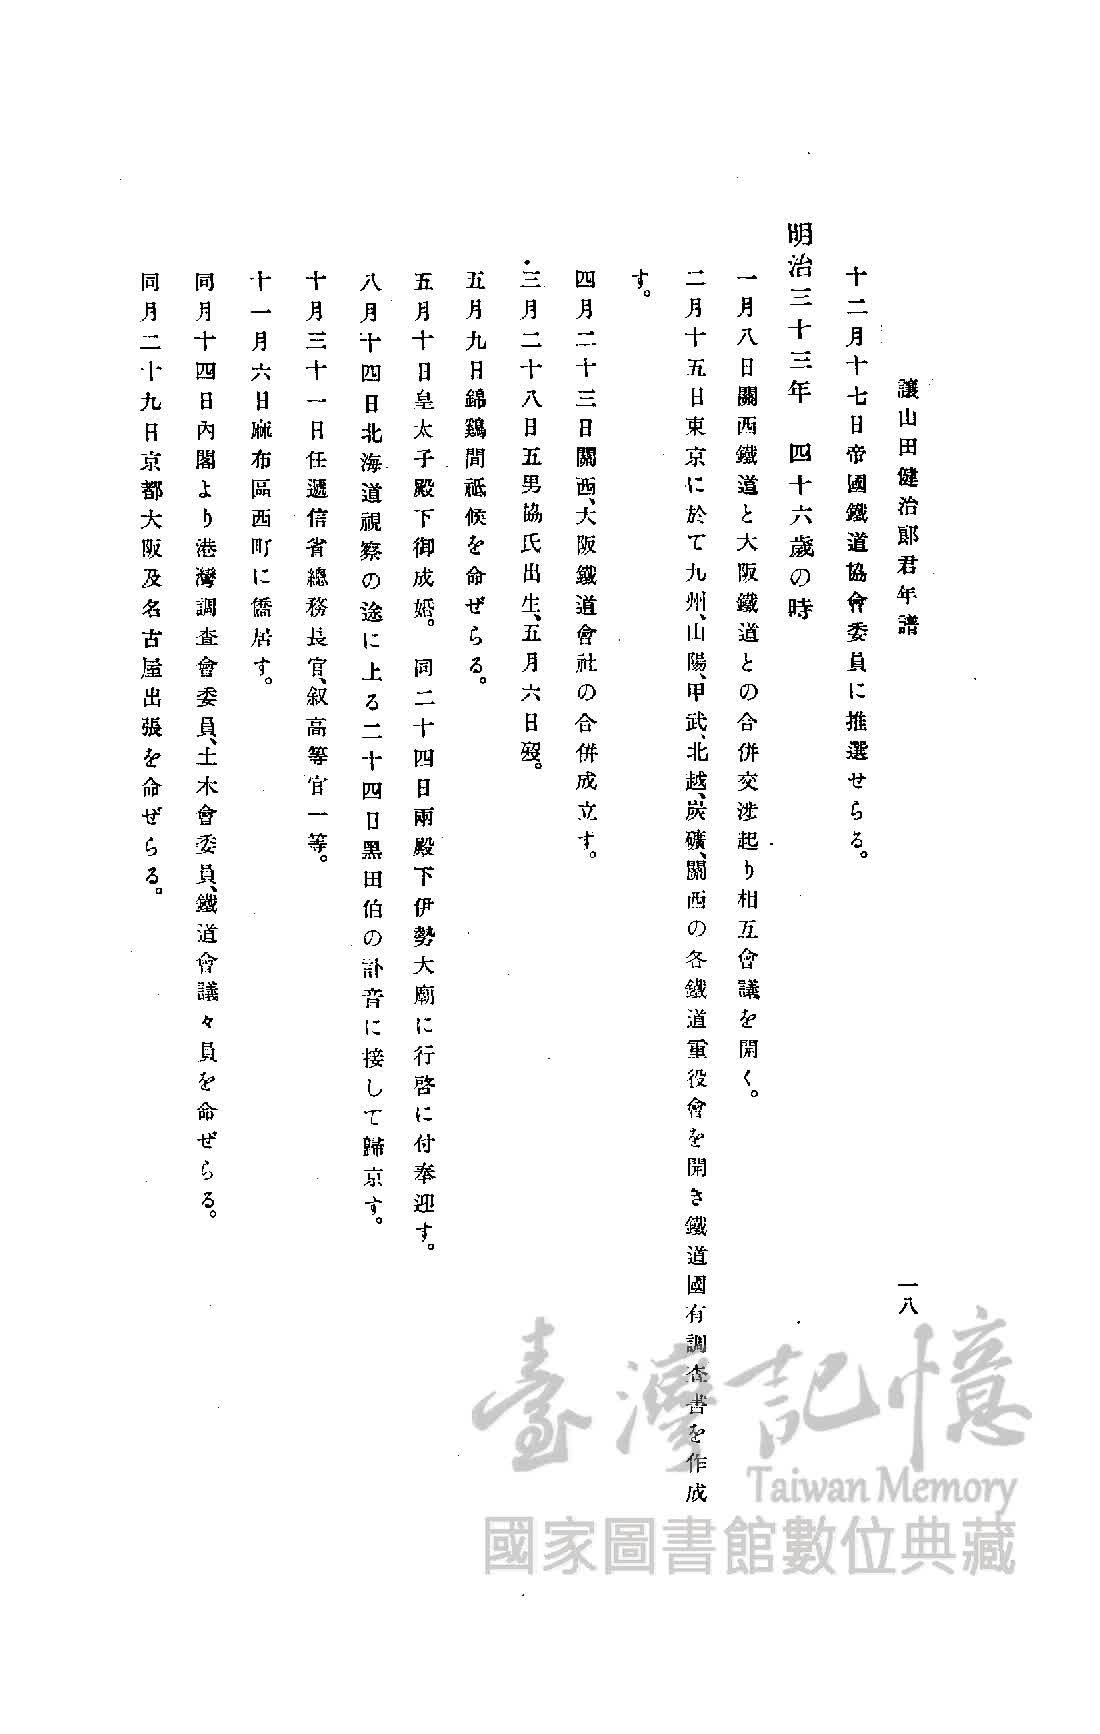 讓山田健治郎君年譜
一八
十二月十七日帝國鐵道協會委員に推選せらる。
明治三十三年 四十六歲の時
一月八日關西鐵道と大阪鐵道との合併交涉起り相互會議を開く。
二月十五日東京に於て九州、山陽、甲武、北越、炭礦、關西の各鐵道重役會を開き鐵道國有調查書を作成
す。
四月二十三日關西、大阪鐵道會社の合併成立す。
三月二十八日五男協氏出生、五月六日歿。
五月九日錦鷄間祗候を命ぜらる。
五月十日皇太子殿下御成婚。 同二十四日兩殿下伊勢大廟に行啓に付奉迎す。
八月十四日北海道視察の途に上る二十四日黑田伯の訃音に接して歸京す。
十月三十一日任遞信省總務長官、叙高等官一等。
十一月六日麻布區西町に僑居す。
同月十四日內閣より港灣調查會委員、土木會委員、鐵道會議々員を命ぜらる。
同月二十九日京都大阪及名古屋出張を命ぜらる。
臺灣記憶
Taiwan Memory
國家圖書館數位典藏